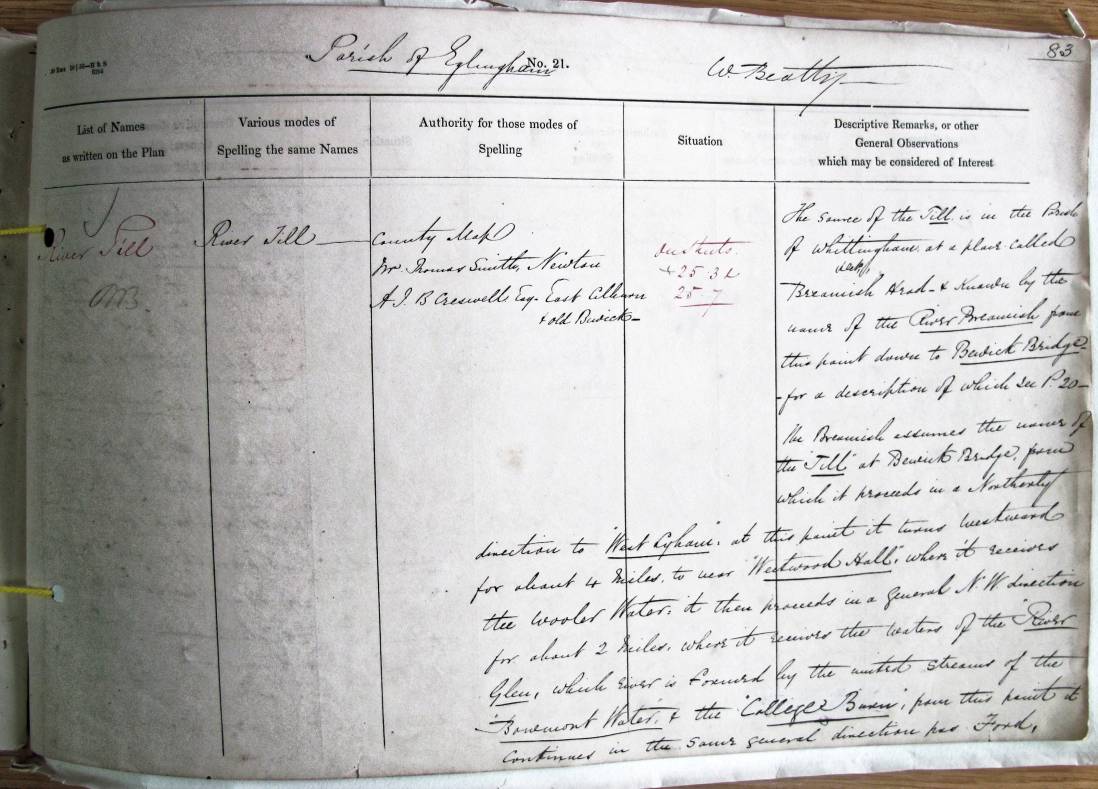 83
Parish of Eglingham
No. 21.
W. Beatty
List of Names
as written on the Plan
Various modes of
Spelling the same Names
Authority for those modes of
Spelling
Situation
Descriptive Remarks, or other
General Observations
which may be considered of Interest
River Till
River Till
County Map
Mr. Thomas Smith, Newton
A. J. B Creswells Esq. East Lilburn
& old Bewick
25.32
25.7
The source of the Till is in the Parish
of Whittingham at a place called
Breamish Head - & Known by the
name of the River Breamish from
this point down to Bewick Bridge -
- for a description of which see P. 20 -
The Breamish assumes the name of
the "Till" at Bewick Bridge, from
which it proceeds in a Northerly
direction to "West Lyham", at this point it turns Westward
for about 4 Miles, to near "Weetwood Hall", where it receives
the Wooler Water; it then proceeds in a general N.W. direction
for about 2 Miles, where it receives the waters of the "River
Glen, which river is formed by the united streams of the
"Bowmont Water, & the "College Burn", from this point it
continues in the same general direction pas Ford,